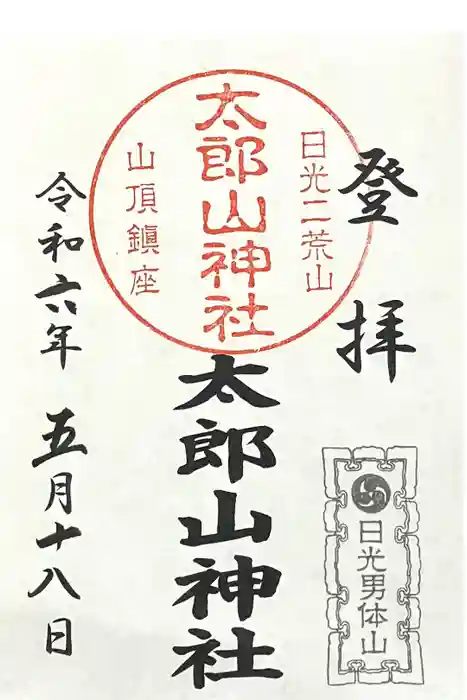 登拝
日光男体山
日光二荒山
太郎山神社
山頂鎮座
太郎山神社
令和六年 五月十八日